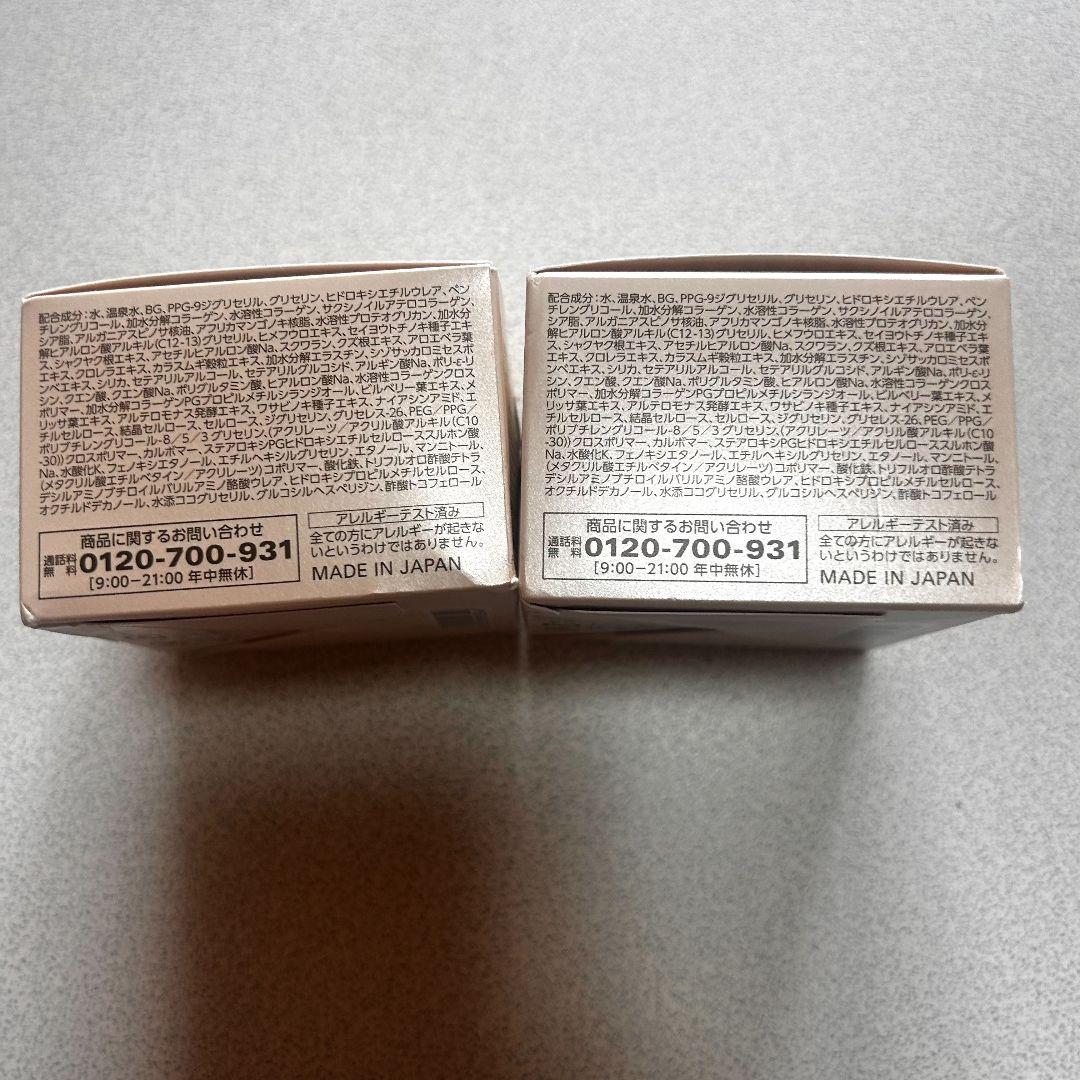 配合成分：水、温泉水、BG、PPG-9ジグリセリル、グリセリン、ヒドロキシエチルウレア、ペン
チレングリコール、加水分解コラーゲン、水溶性コラーゲン、サクシノイルアテロコラーゲン、
シア脂、アルガニアスピノサ核油、アフリカマンゴノキ核脂、水溶性プロテオグリカン、加水分
解ヒアルロン酸アルキル(C12-13)グリセリル、ヒメフウロエキス、セイヨウトチノキ種子エキ
ス、シャクヤク根エキス、アセチルヒアルロン酸Na、スクワラン、クズ根エキス、アロエベラ葉
エキス、クロレラエキス、カラスムギ穀粒エキス、加水分解エラスチン、シゾサッカロミセスポ
ンベエキス、シリカ、セテアリルアルコール、セテアリルグルコシド、アルギン酸Na、ポリ-ε-リ
シン、クエン酸、クエン酸Na、ポリグルタミン酸、ヒアルロン酸Na、水溶性コラーゲンクロス
ポリマー、加水分解コラーゲンPGプロピルメチルシランジオール、ビルベリー葉エキス、メ
リッサ葉エキス、アルテロモナス発酵エキス、ワサビノキ種子エキス、ナイアシンアミド、エ
チルセルロース、結晶セルロース、セルロース、ジグリセリン、グリセレス-26、PEG／PPG／
ポリブチレングリコール-8／5／3グリセリン、(アクリレーツ／アクリル酸アルキル(C10
-30))クロスポリマー、カルボマー、ステアロキシPGヒドロキシエチルセルローススルホン酸
Na、水酸化K、フェノキシエタノール、エチルヘキシルグリセリン、エタノール、マンニトール、
(メタクリル酸エチルベタイン／アクリレーツ)コポリマー、酸化鉄、トリフルオロ酢酸テトラ
デシルアミノブチロイルバリルアミノ酪酸ウレア、ヒドロキシプロピルメチルセルロース、
オクチルドデカノール、水添ココグリセリル、グルコシルヘスペリジン、酢酸トコフェロール
商品に関するお問い合わせ
通話料
無料
0120-700-931
[9:00−21:00 年中無休]
アレルギーテスト済み
全ての方にアレルギーが起きな
いというわけではありません。
MADE IN JAPAN
配合成分：水、温泉水、BG、PPG-9ジグリセリル、グリセリン、ヒドロキシエチルウレア、ペン
チレングリコール、加水分解コラーゲン、水溶性コラーゲン、サクシノイルアテロコラーゲン、
シア脂、アルガニアスピノサ核油、アフリカマンゴノキ核脂、水溶性プロテオグリカン、加水分
解ヒアルロン酸アルキル(C12-13)グリセリル、ヒメフウロエキス、セイヨウトチノキ種子エキ
ス、シャクヤク根エキス、アセチルヒアルロン酸Na、スクワラン、クズ根エキス、アロエベラ葉
エキス、クロレラエキス、カラスムギ穀粒エキス、加水分解エラスチン、シゾサッカロミセスポ
ンベエキス、シリカ、セテアリルアルコール、セテアリルグルコシド、アルギン酸Na、ポリ-ε-リ
シン、クエン酸、クエン酸Na、ポリグルタミン酸、ヒアルロン酸Na、水溶性コラーゲンクロス
ポリマー、加水分解コラーゲンPGプロピルメチルシランジオール、ビルベリー葉エキス、メ
リッサ葉エキス、アルテロモナス発酵エキス、ワサビノキ種子エキス、ナイアシンアミド、エ
チルセルロース、結晶セルロース、セルロース、ジグリセリン、グリセレス-26、PEG／PPG／
ポリブチレングリコール-8／5／3グリセリン、(アクリレーツ／アクリル酸アルキル(C10
-30))クロスポリマー、カルボマー、ステアロキシPGヒドロキシエチルセルローススルホン酸
Na、水酸化K、フェノキシエタノール、エチルヘキシルグリセリン、エタノール、マンニトール、
(メタクリル酸エチルベタイン／アクリレーツ)コポリマー、酸化鉄、トリフルオロ酢酸テトラ
デシルアミノブチロイルバリルアミノ酪酸ウレア、ヒドロキシプロピルメチルセルロース、
オクチルドデカノール、水添ココグリセリル、グルコシルヘスペリジン、酢酸トコフェロール
商品に関するお問い合わせ
通話料
無料
0120-700-931
[9:00−21:00 年中無休]
アレルギーテスト済み
全ての方にアレルギーが起きな
いというわけではありません。
MADE IN JAPAN